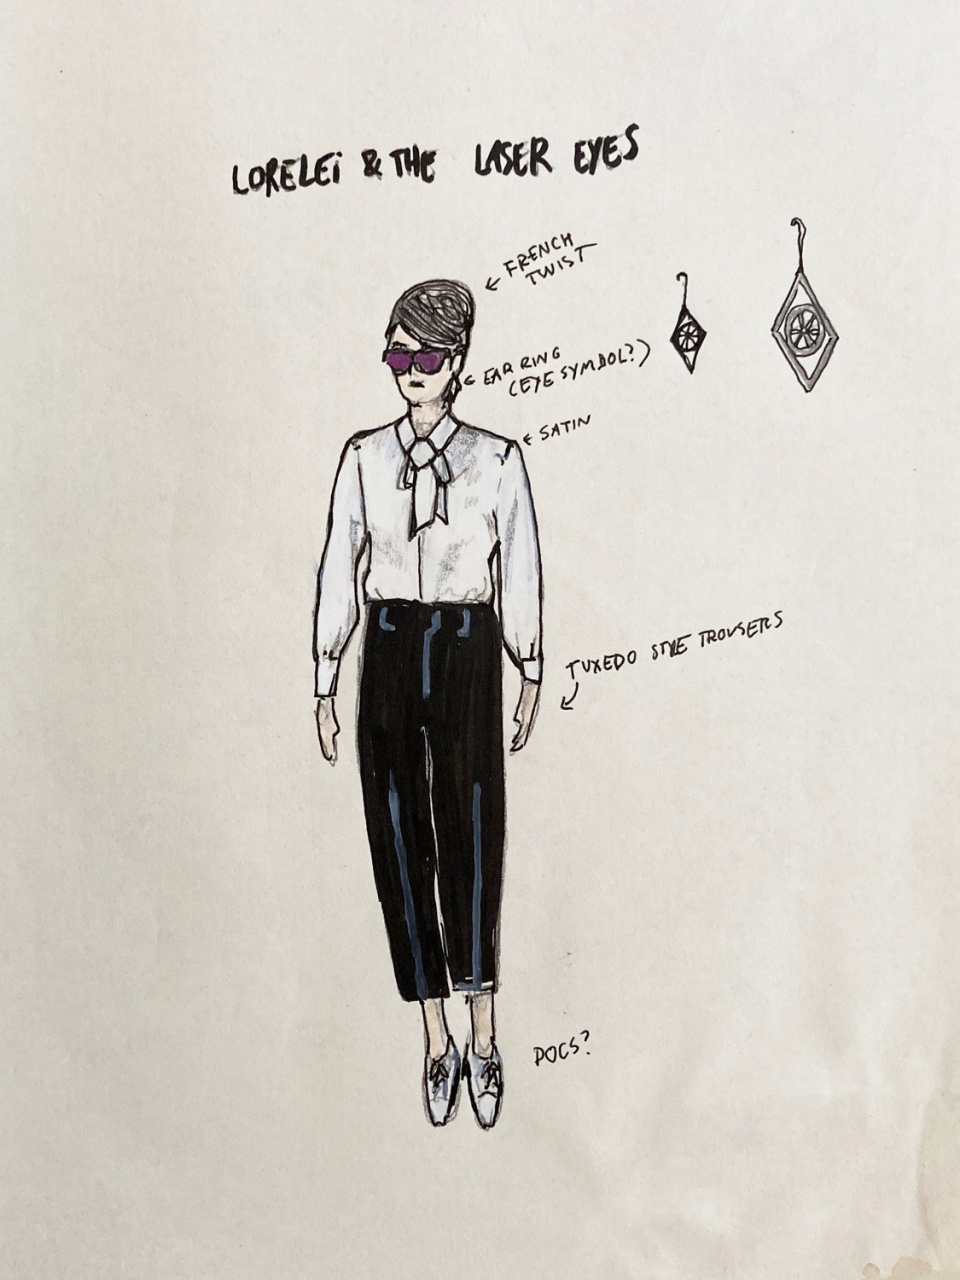 LORELEi & THE LASER EYES
← FRENCH
TWIST
← EAR RING
(EYE SYMBOL?)
← SATIN
TUXEDO STYLE TROUSERS
POCS?